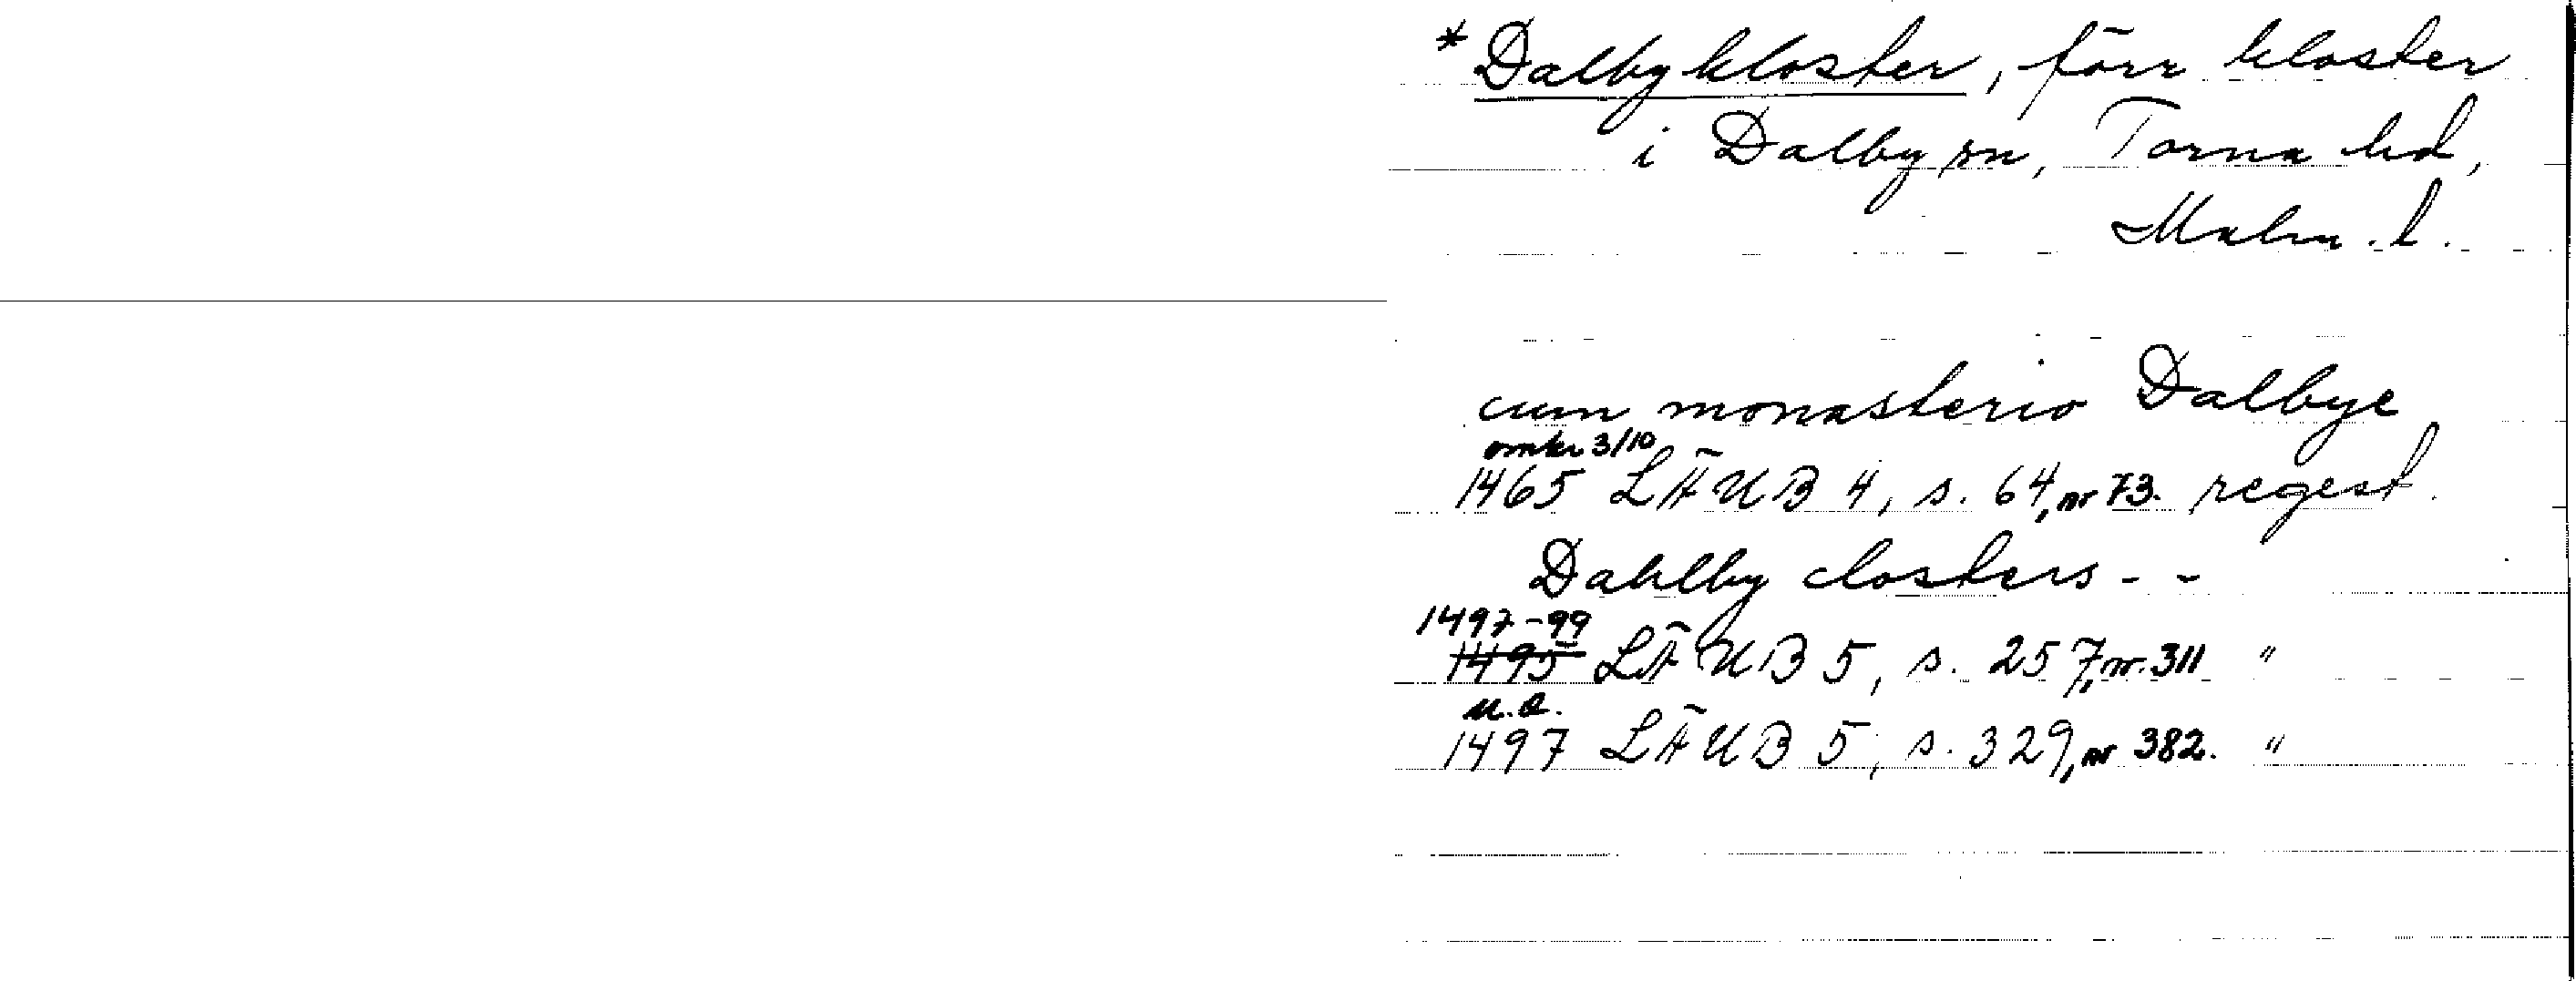 *Dalby kloster, förr kloster
i Dalby sn, Torna hd,
Malm. l.
cum monasterio Dalbye
omkr 3/10
1465 LÄUB 4, s. 64, nr 73. regest.
Dahlby closters - -
1497-99
1495 LÄUB 5, s. 257, nr. 311 "
u.å.
1497 LÄUB 5, s. 329, nr 382. "